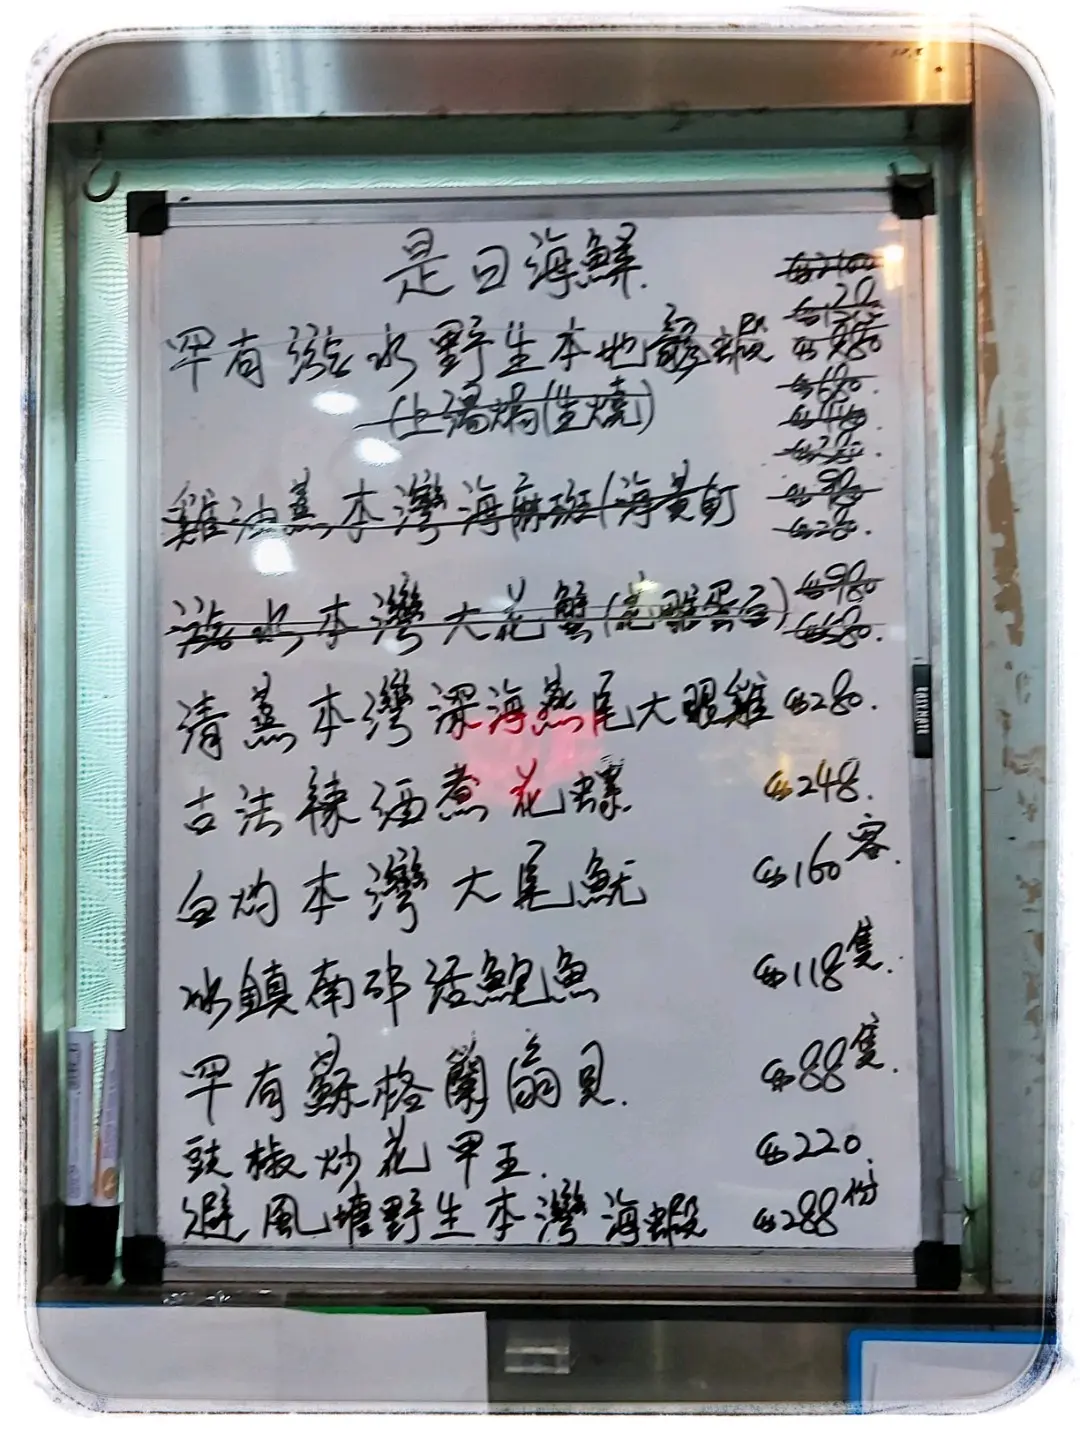 是日海鮮.
罕有游水野生本地龍蝦
(上湯焗(生燒)
雞油蒸本灣海麻斑(海黃釘
游水本灣大花蟹(花雕蛋白) $980
$680.
清蒸本灣深海燕尾大眼雞 $280.
古法辣酒煮花螺 $248.
白灼本灣大尾魷 $160客.
冰鎮南非活鮑魚 $118隻.
罕有蘇格蘭扇貝. $88隻.
豉椒炒花甲王. $220.
避風塘野生本灣海蝦 $288份